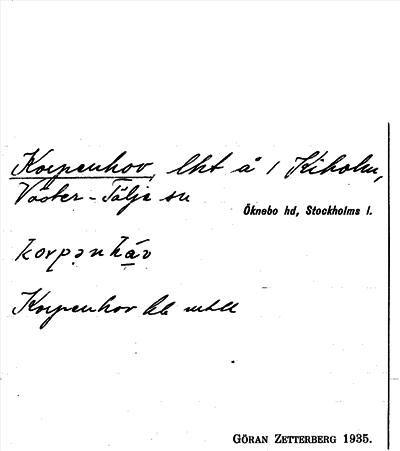 Korpenhov, lht å 1 Kiholm,
Väster-Tälje sn
Öknebo hd, Stockholms l.
korpənhåv
Korpenhov
GÖRAN ZETTERBERG 1935.